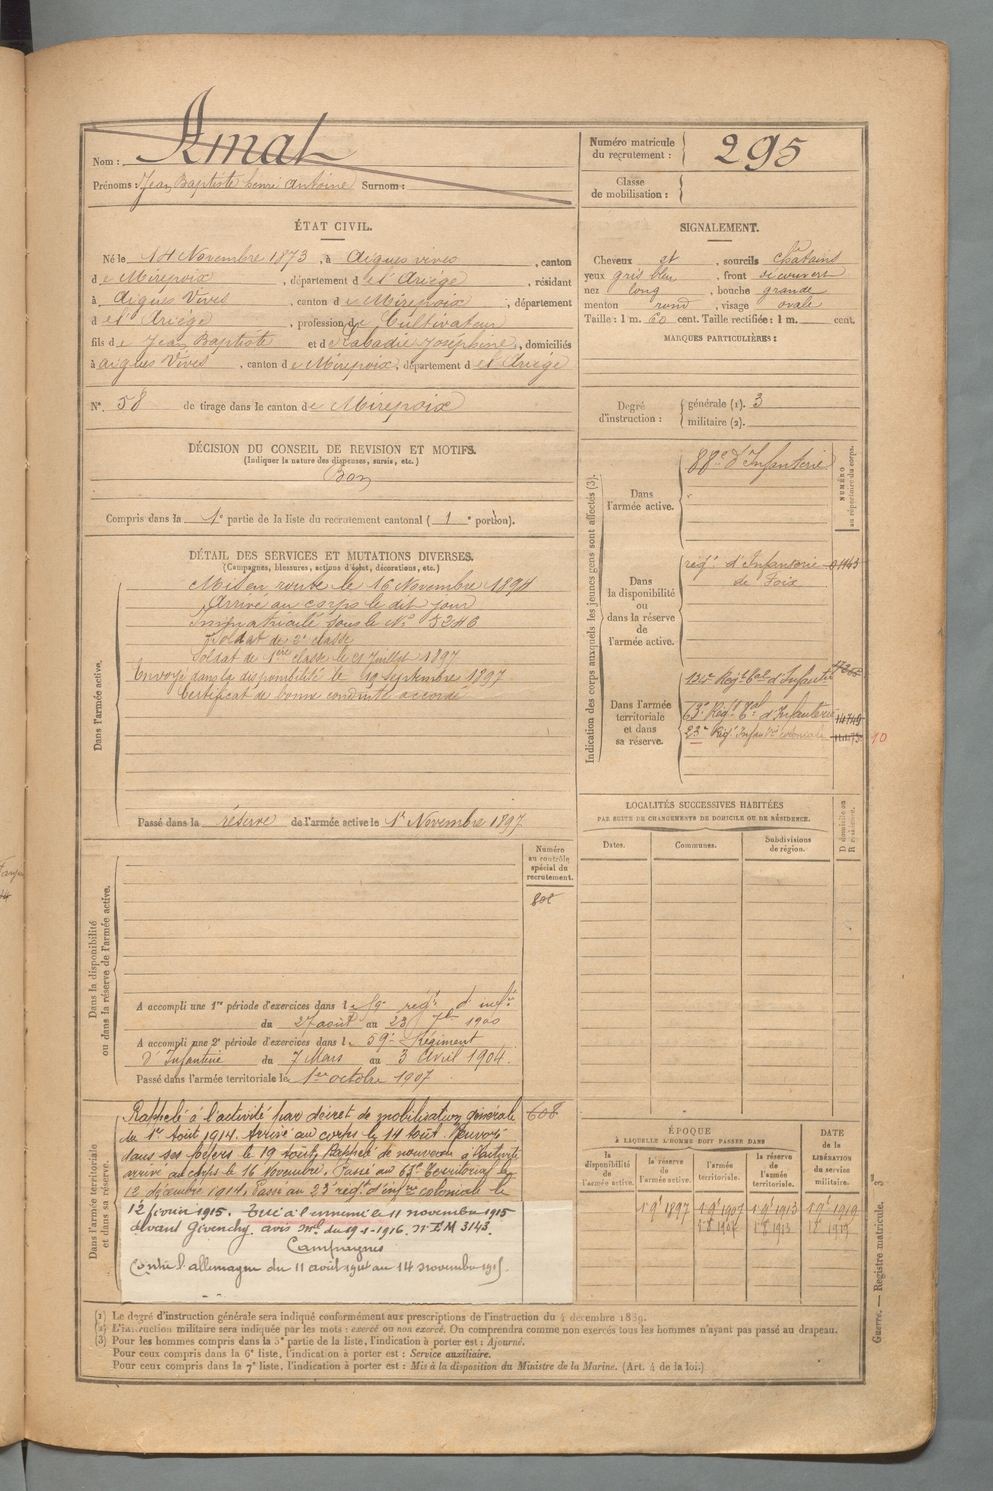 Nom : Amat
Prénoms : Jean Baptiste henri antoine Surnom :
Numéro matricule du recrutement : 295
Classe de mobilisation :
ÉTAT CIVIL.
Né le 14 Novembre 1873, à Aigues vives, canton
de Mirepoix, département de l'Ariège, résidant
à Aigues Vives, canton de Mirepoix, département
de l'Ariège, profession de Cultivateur
fils de Jean Baptiste et de Labadie Joséphine, domiciliés
à aigues Vives, canton de Mirepoix, département de l'Ariège
N°. 58 de tirage dans le canton de Mirepoix
SIGNALEMENT.
Cheveux et, sourcils Chatains
yeux gris bleu, front découvert
nez long, bouche grande
menton rond, visage ovale
Taille : 1 m. 60 cent. Taille rectifiée : 1 m. cent.
MARQUES PARTICULIÈRES :
Degré d'instruction : générale (1). 3
militaire (2).
DÉCISION DU CONSEIL DE REVISION ET MOTIFS.
(Indiquer la nature des dispenses, sursis, etc.)
Bon
Compris dans la 1e partie de la liste du recrutement cantonal ( 1e portion).
DÉTAIL DES SERVICES ET MUTATIONS DIVERSES.
(Campagnes, blessures, actions d'éclat, décorations, etc.)
Dans l'armée active.
Mis en route le 16 Novembre 1894
Arrivé au corps le dit jour
Immatriculé sous le N° 5246
Soldat de 2e classe
Soldat de 1ère classe le 21 Juillet 1897
Envoyé dans la disponibilité le 19 septembre 1897
Certificat de bonne conduite accordé
Passé dans la réserve de l'armée active le 1er Novembre 1897
Indication des corps auxquels les jeunes gens sont affectés (3).
NUMÉRO au répertoire du corps.
Dans l'armée active.
88e d'Infanterie
Dans la disponibilité ou dans la réserve de l'armée active.
régt d'Infanterie
de Foix
Dans l'armée territoriale et dans sa réserve.
134e Regt tal d'Infanterie
63e Régt tal d'Infanterie 14749
23e Régt Infant'ie coloniale 10
LOCALITÉS SUCCESSIVES HABITÉES
PAR SUITE DE CHANGEMENTS DE DOMICILE OU DE RÉSIDENCE.
Dates. Communes. Subdivisions de région. D domicile ou R résidence.
Dans la disponibilité ou dans la réserve de l'armée active.
Numéro au contrôle spécial du recrutement.
A accompli une 1re période d'exercices dans le 59e régt d'infie
du 27 août au 23 7bre 1900
A accompli une 2e période d'exercices dans le 59e Régiment
d'Infanterie du 7 Mars au 3 Avril 1904.
Passé dans l'armée territoriale le 1er octobre 1907
Dans l'armée territoriale et dans sa réserve.
608
Rappelé à l'activité par décret de mobilisation générale
du 1er Août 1914. Arrivé au corps le 14 août. Renvoyé
dans ses foyers le 19 août. Rappelé de nouveau à l'activité
arrivé au corps le 16 Novembre. Passé au 63e Territorial le
12 décembre 1914. Passé au 23e régt d'infrie coloniale le
12 février 1915. Tué à l'ennemi le 11 novembre 1915
devant Givenchy. avis mel du 19-1-1916. N° E.M 3143.
Campagnes
Contre l'allemagne du 11 août 1914 au 14 novembre 1915.
ÉPOQUE
À LAQUELLE L'HOMME DOIT PASSER DANS
DATE de la LIBÉRATION du service militaire.
la disponibilité de l'armée active.
la réserve de l'armée active.
l'armée territoriale.
la réserve de l'armée territoriale.
(1) Le degré d'instruction générale sera indiqué conformément aux prescriptions de l'instruction du 4 décembre 1889.
(2) L'instruction militaire sera indiquée par les mots : exercé ou non exercé. On comprendra comme non exercés tous les hommes n'ayant pas passé au drapeau.
(3) Pour les hommes compris dans la 5e partie de la liste, l'indication à porter est : Ajourné.
Pour ceux compris dans la 6e liste, l'indication à porter est : Service auxiliaire.
Pour ceux compris dans la 7e liste, l'indication à porter est : Mis à la disposition du Ministre de la Marine. (Art. 4 de la loi.)
Guerre. — Registre matricule.